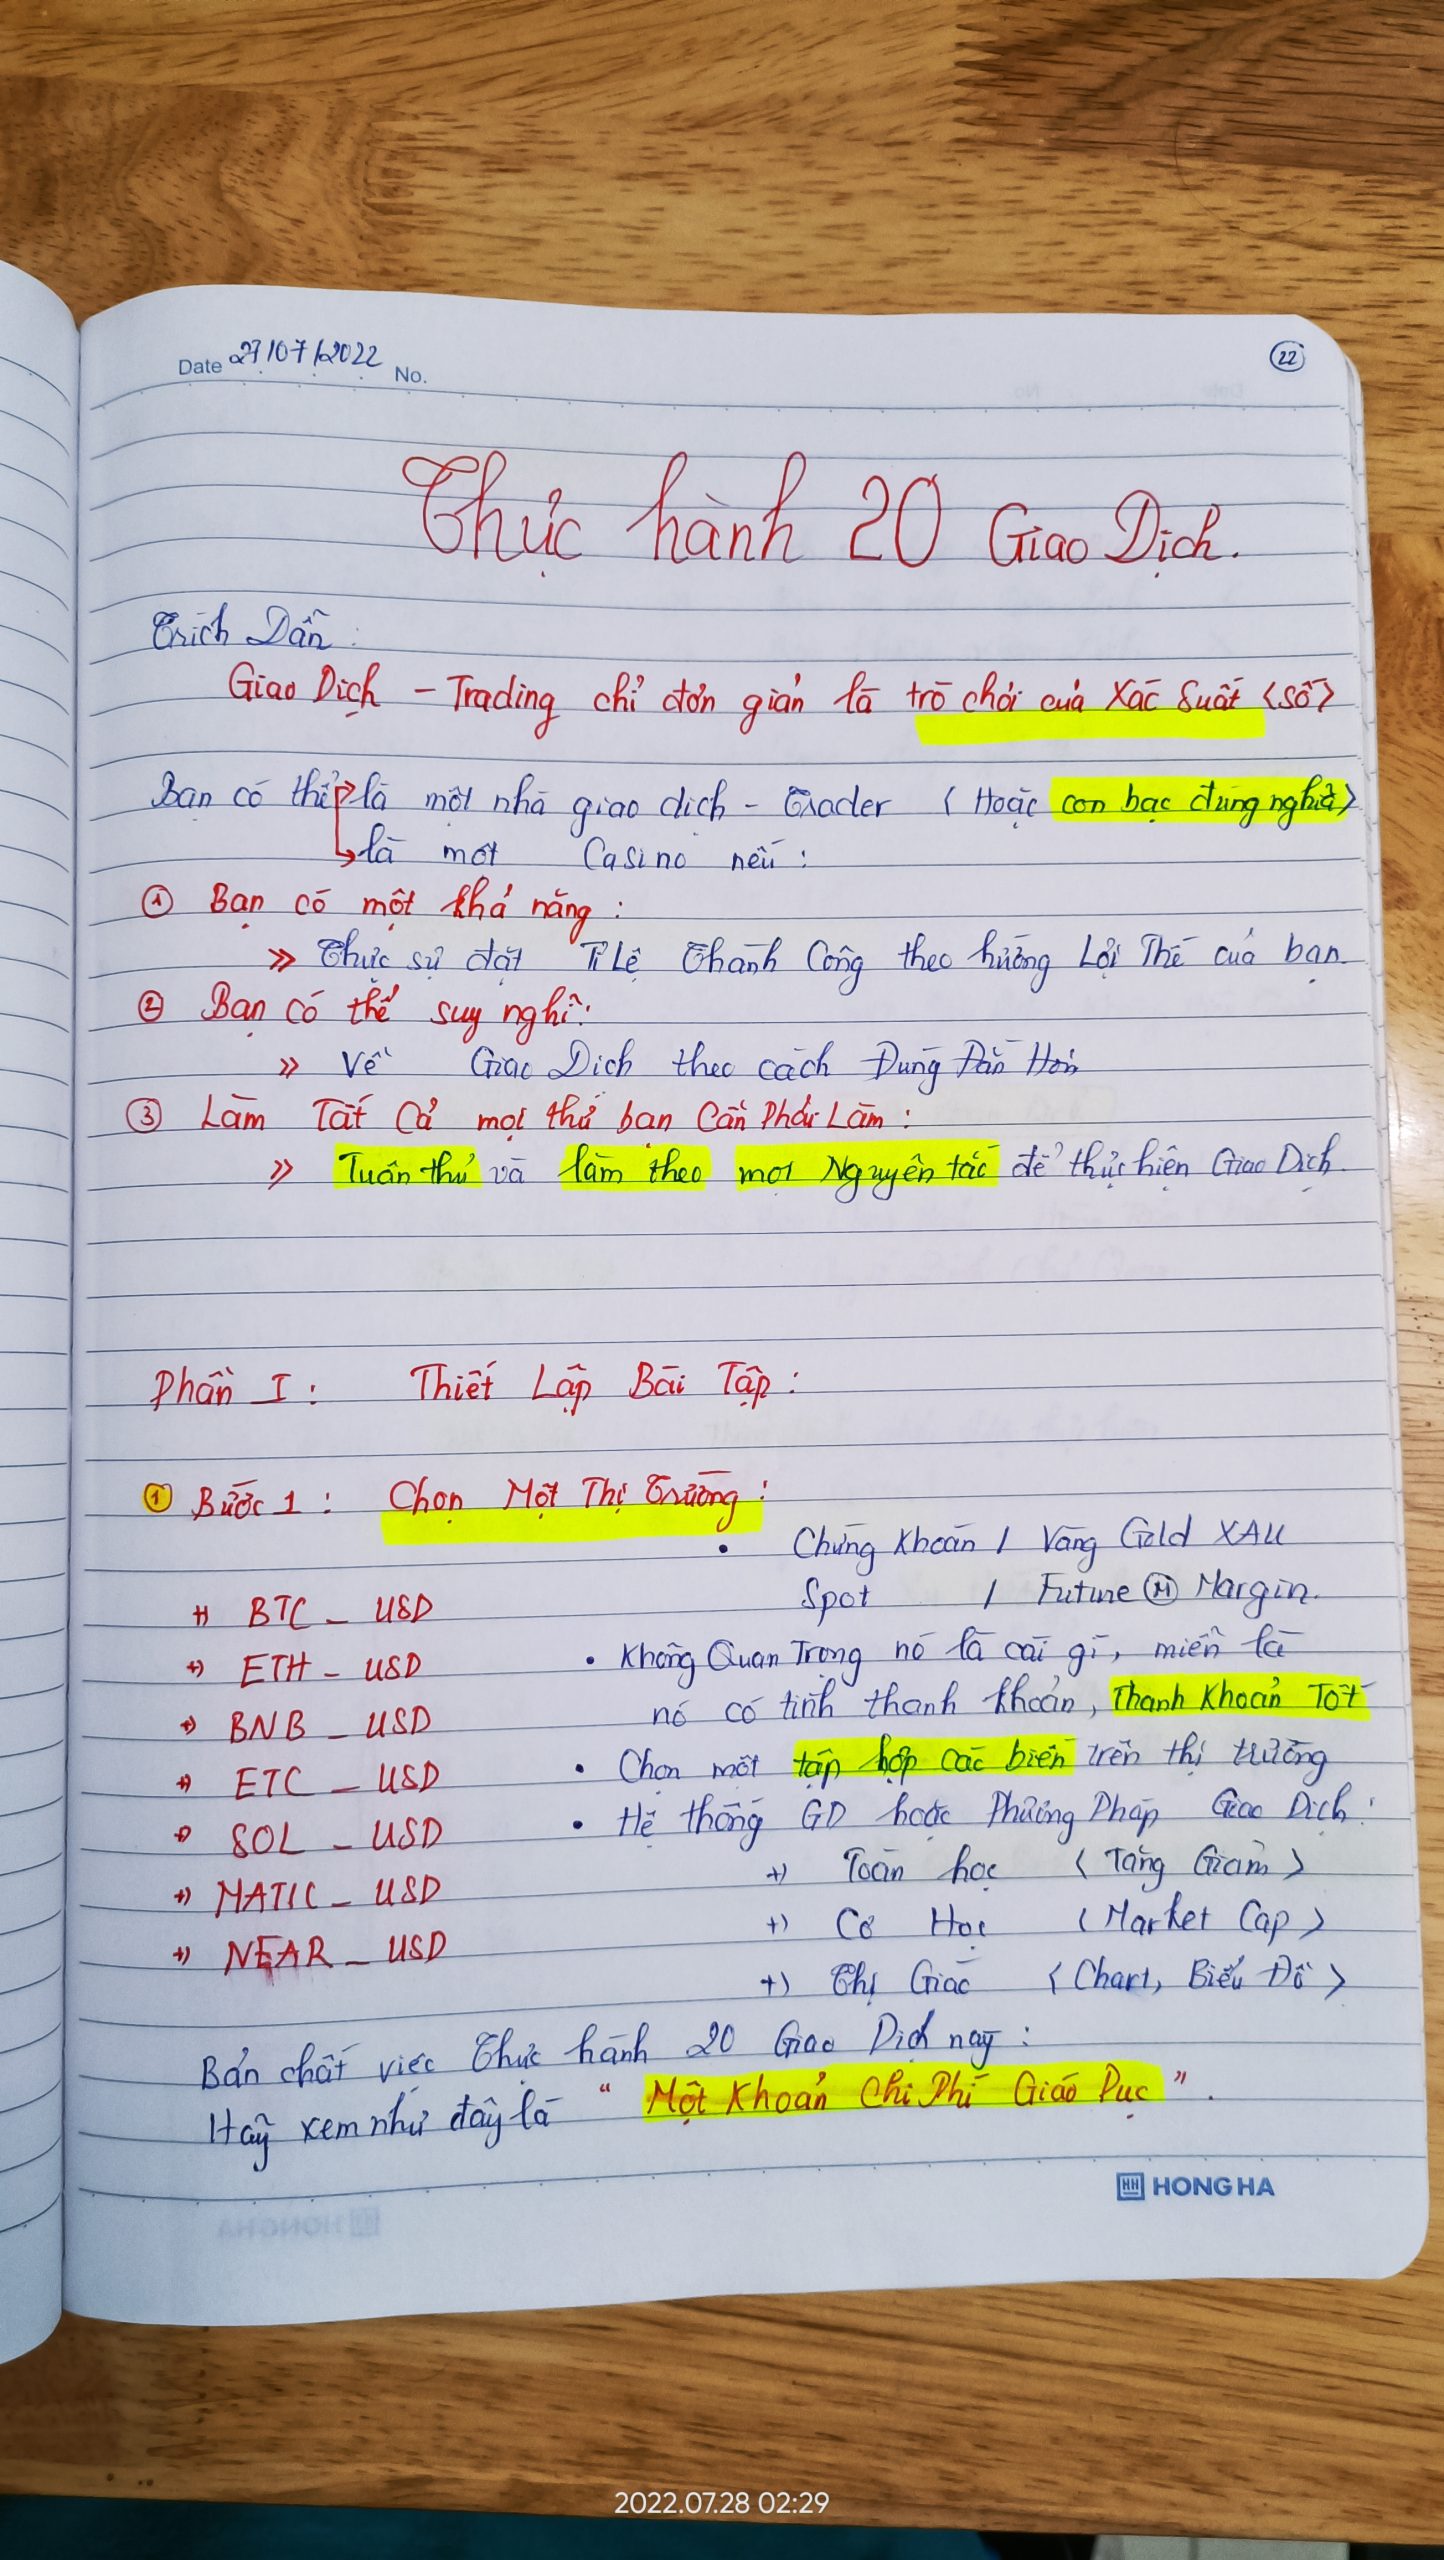 Date 27/07/2022 No.
22
Thực hành 20 Giao Dịch.
Trích Dẫn:
Giao Dịch – Trading chỉ đơn giản là trò chơi của Xác Suất <Số>
Bạn có thể là một nhà giao dịch – Trader <Hoặc con bạc đúng nghĩa>
là một Casino nếu:
① Bạn có một khả năng:
>> Thực sự đặt Tỉ Lệ Thành Công theo hướng Lợi Thế của bạn
② Bạn có thể suy nghĩ:
>> Về Giao Dịch theo cách Đúng Đắn Hơn
③ Làm Tất Cả mọi thứ bạn Cần Phải Làm:
>> Tuân thủ và làm theo mọi Nguyên tắc để thực hiện Giao Dịch
Phần I: Thiết Lập Bài Tập:
① Bước 1: Chọn Một Thị Trường:
• Chứng Khoán / Vàng Gold XAU
Spot / Future Ⓜ Margin.
+) BTC – USD
+) ETH – USD
+) BNB – USD
+) ETC – USD
+) SOL – USD
+) MATIC – USD
+) NEAR – USD
• Không Quan Trọng nó là cái gì, miễn là
nó có tính thanh khoản, Thanh Khoản Tốt
• Chọn một tập hợp các biến trên thị trường
• Hệ thống GD hoặc Phương Pháp Giao Dịch:
+) Toán học <Tăng Giảm>
+) Cơ Học <Market Cap>
+) Thị Giác <Chart, Biểu Đồ>
Bản chất việc Thực hành 20 Giao Dịch này:
Hãy xem như đây là " Một Khoản Chi Phí Giáo Dục ".
HONG HA
2022.07.28 02:29